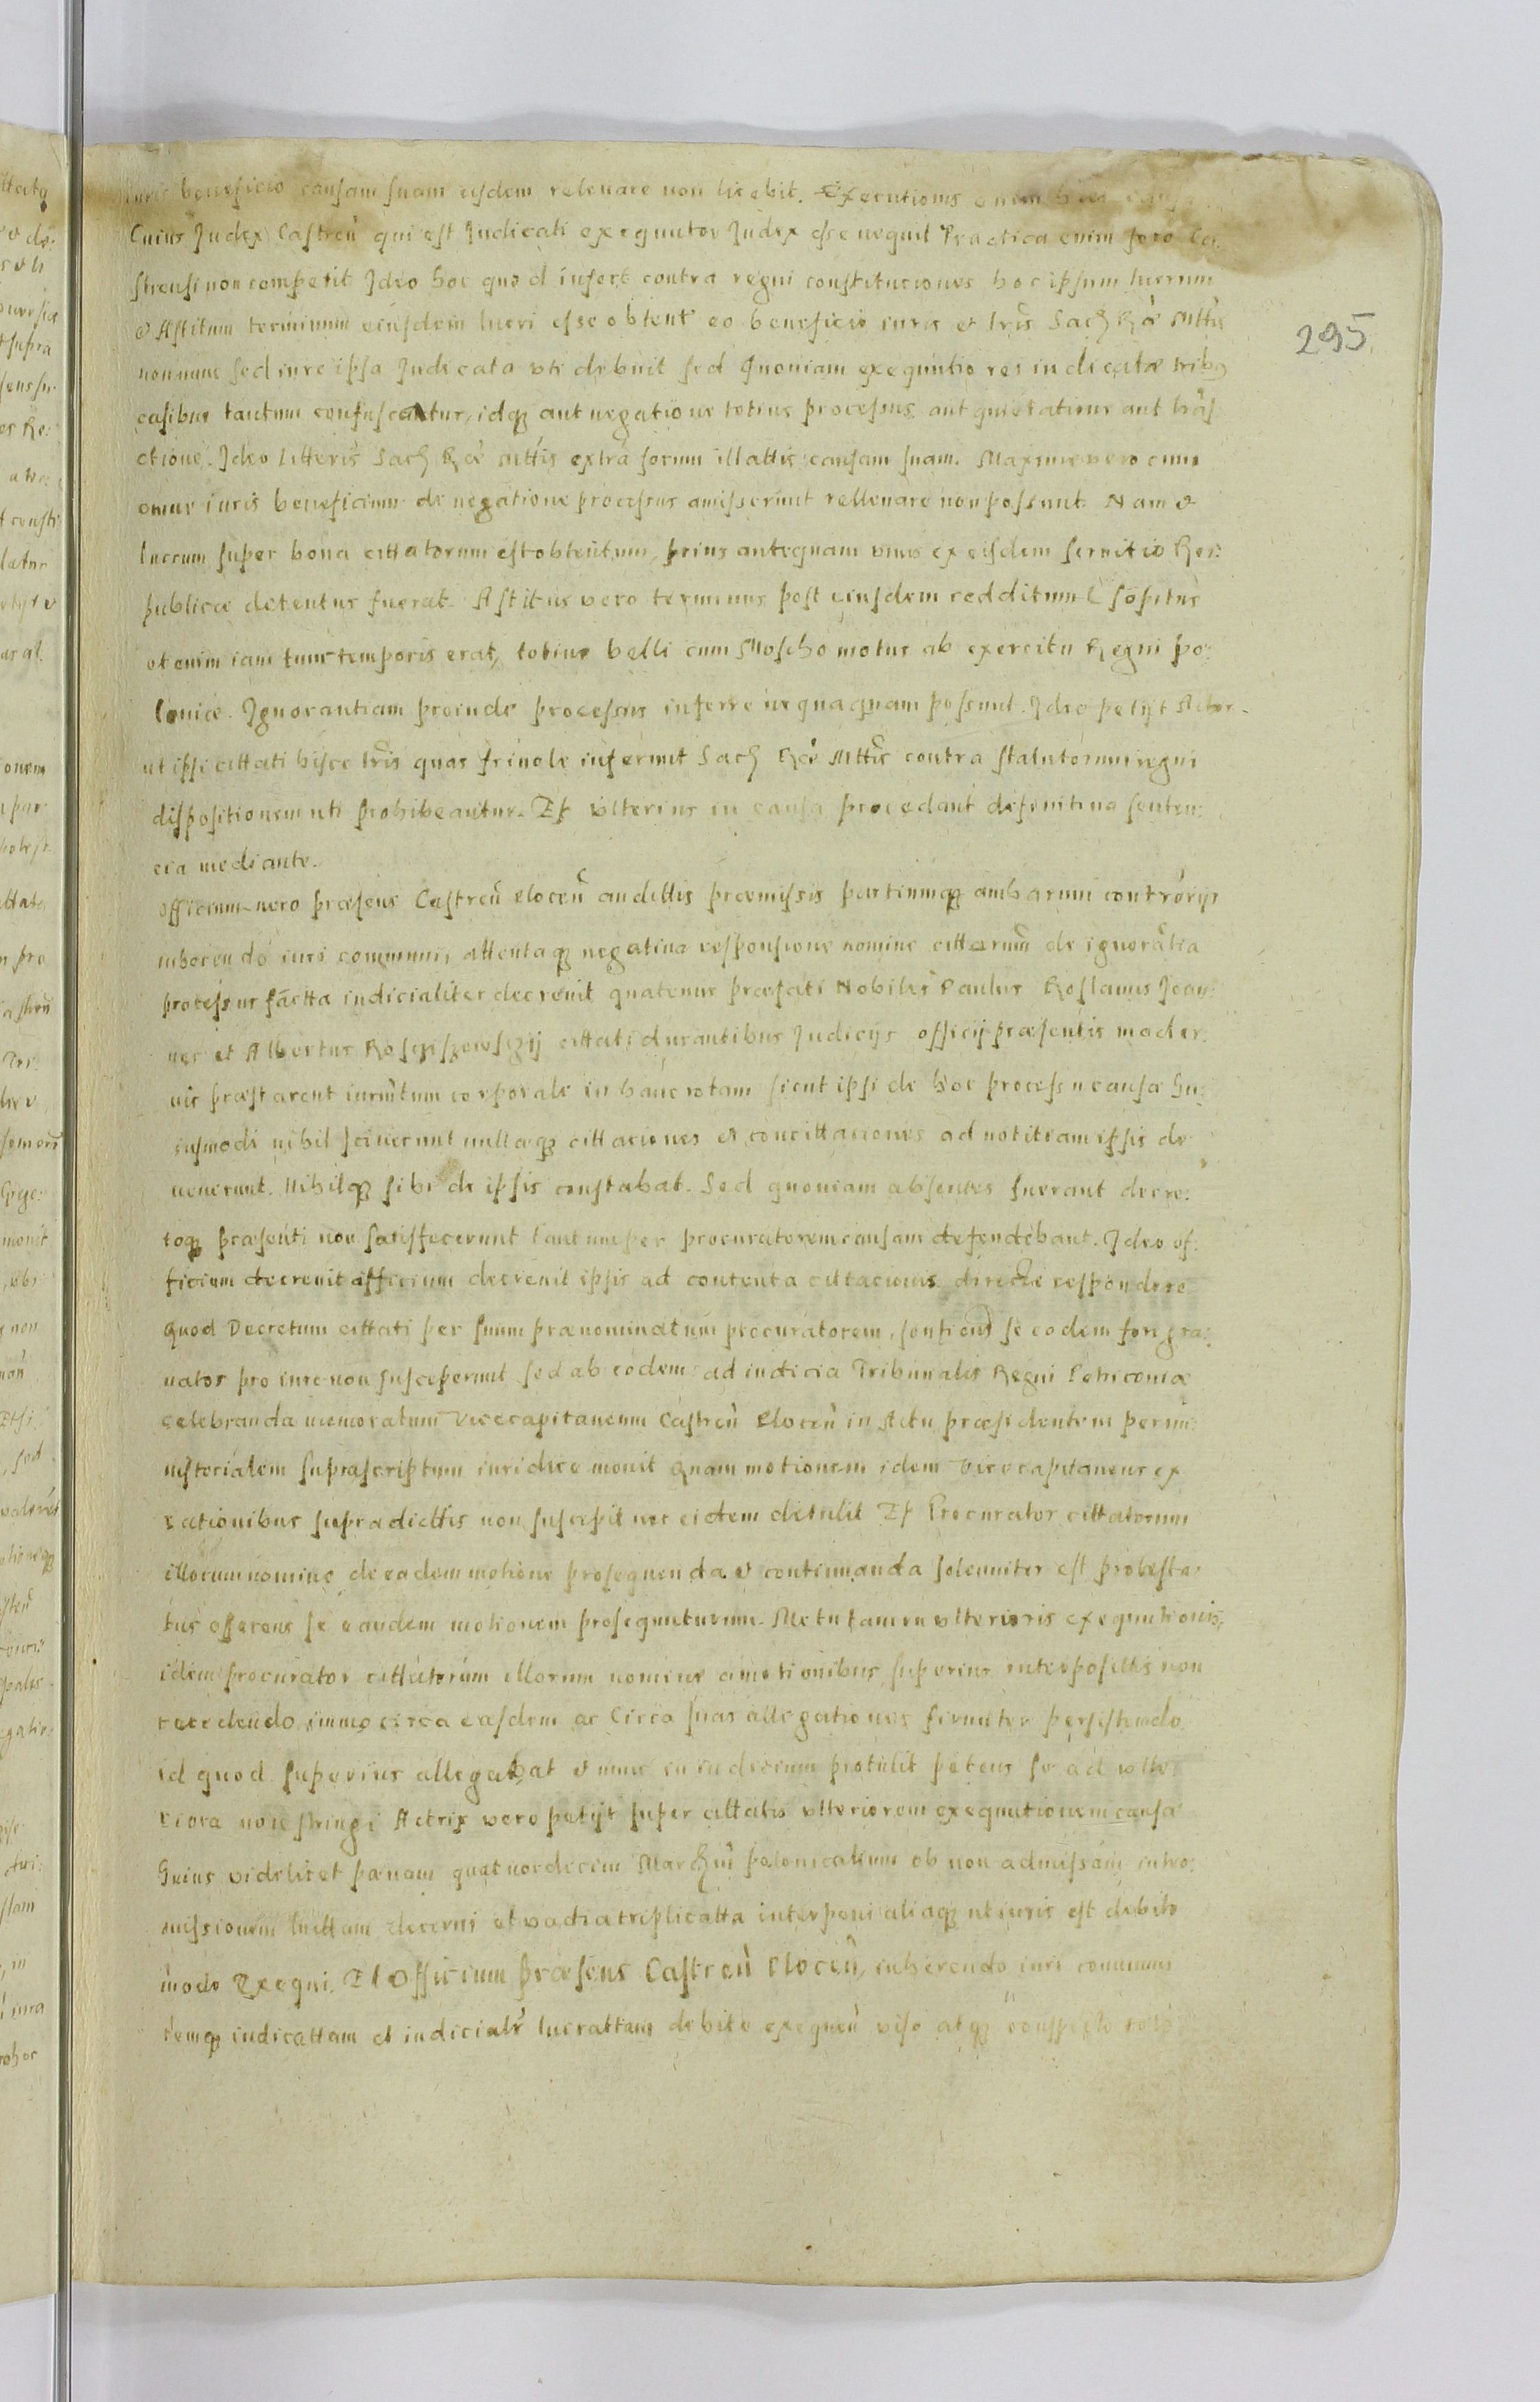 iuris beneficio causam suam eisdem releuare non licebit. Executionis enim
Cuius Judex Castreñ qui est Judicati exequutor Judex esse nequit Practica enim foro Ca:
strensi non competit Ideo hoc quod infert contra regni constituciones hoc ipsum lucrum
& Astitum terminum eiusdem lucri esse obtent eo beneficio iuris et lris Sacz Rǽ Mttis
non nunc sed in re ipsa Judicata vti debuit sed Quoniam exequutio rei iudicatæ tribꝯ
casibus tantum confuscatur, idqꝫ aut negatione totius processus aut quietatione aut trās
ctione. Ideo Litteris Sacz Rǽ Mttis extra forum illattis causam suam. Maxime vero cum
omne iuris beneficium de negatione processus amisserunt rellenare non possunt. Nam &
lucrum super bona cittatorum est obtentum, prius antequam vnus ex eisdem seruitio Rei:
publicæ detentus fuerat. Astitus vero terminus post eiusdem redditum & sopitus
et enim iam tunc temporis erat, totius belli cum Moscho motus ab exercitu Regni po:
loniæ. Ignorantiam proinde processus inferre ne quaquam possunt. Ideo petijt Actor.
ut ipsi cittati hisce lris quas friuole inferunt Sacz Rǽ Mttis contra statutorum regni
dispositionem uti prohibeantur. Et vlterius in causa procedant difinitiua senten:
cia mediante.
Officium vero præsens Castreñ Ploceñ audittis præmissis partiumqꝫ ambarum contrōrijs
inherendo iuri communi, attentaqꝫ negatiua responsione nomine cittarum de ignorātia
processus factta iudicialiter decreuit quatenus præfati Nobiles Paulus Roslanus Joan:
nes et Albertus cittati durantibus Judicijs officij præsentis moder:
nis præstarent iurm̄tum corporale in hanc rotam sicut ipsi de hoc processu causæ hu:
iusmodi nihil sciuerunt nullæqꝫ cittaciones et concittaciones ad notitiam ipsis de
uenerunt. Nihilqꝫ sibi de ipsis constabat. Sed quoniam absentes fuerant decre:
toqꝫ præsenti non satisfecerunt tantum per procuratorem causam defendebant. Ideo of:
ficium decreuit officium decreuit ipsis ad contenta cittacionis directe respondere
Quod Decretum cittati per suum prænominatum procuratorem, sentiens se eodem fori gra:
uatos pro iure non susceperunt sed ab eodem ad iudicia Tribunalis Regni Petriconiæ
celebranda memoratum Vicecapitaneum Castreñ Ploceñ in Actu præsidentem per mi:
nisterialem suprascriptum iuridice monit Quam motionem idem Vicecapitaneus ex
rationibus supradicttis non suscepit nec eidem detulit Et Procurator cittatorum
illorum nomine de eadem motione prosequenda & continuanda solenniter est protesta:
tus offerens se eandem motionem prosequuturum. Metu tamen vlterioris exequutionis,
idem procurator cittatorum illorum nomine a motionibus superius interposittis non
recedendo immo circa easdem ac Circa suas allegationes firmiter persistendo
id quod superius allegabat & nunc in iudicium protulit petens se ad vlte
riora non stringi Actrix vero petijt super cittatis vlteriorem exequutionem causæ
huius videlicet pænam quatuordecim Marcħm polonicalium ob non admissam intro:
missionem luittam decerni et vadia triplicatta interponi aliaqꝫ ut iuris est debito
modo Exequi. Et Officium præsens Castreñ Ploceñ, inherendo iuri communi
remqꝫ iudicattam et iudicialr̄ lucrattam debite exequeñ viso atqꝫ conspecto toto
295